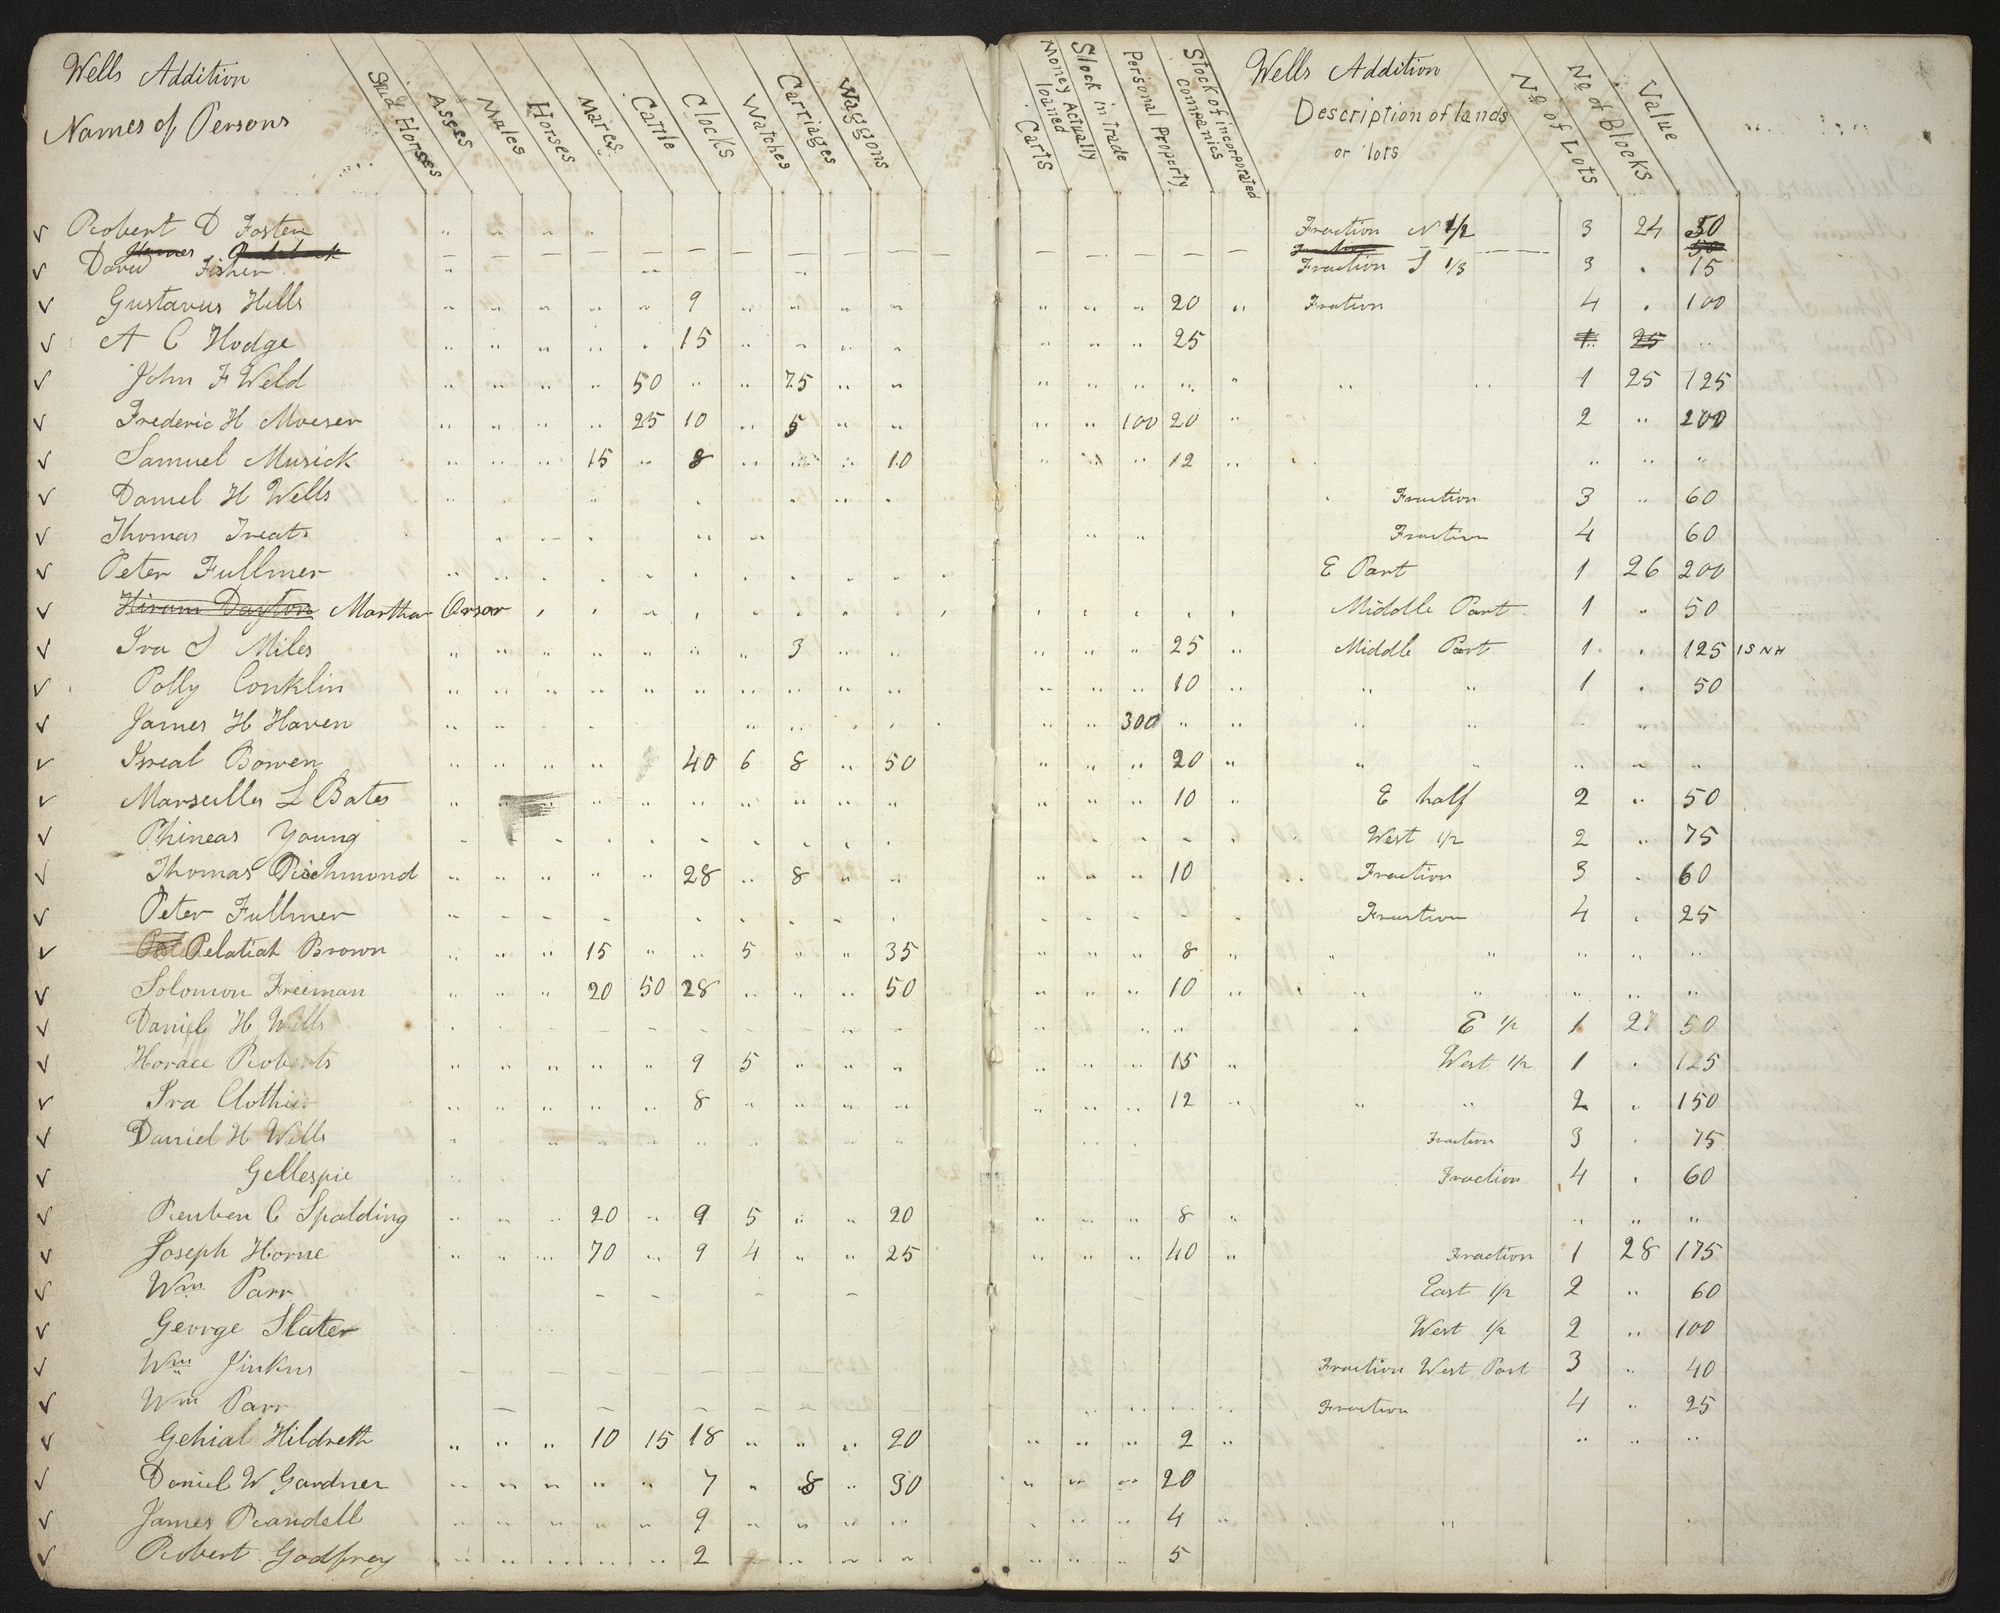 Wells Addition
Names of Persons
Stud Horses Asses Mules Horses Mares Cattle Clocks Watches Carriages Waggons
Carts Money Actually loaned Stock in Trade Personal Property Stock of incorporated Companies
Wells Addition
Description of lands or lots
No of Lots No of Blocks Value
Robert D Foster Fraction N 1/2 3 24 50
James
David Fisher Fraction S 1/3 3 15
Gustavus Hills 9 20 Fration 4 100
A C Hodge 15 25 1 25
John F Weld 50 75 1 25 125
Frederic H Moeser 25 10 5 100 20 2 200
Samuel Musick 15 8 10 12
Daniel H Wells Fraction 3 60
Thomas Treats Fraction 4 60
Peter Fullmer E Part 1 26 200
Hiram Dayton Martha Orsor Middle Part 1 50
Ira S Miles 3 25 Middle Part 1 125 ISNH
Polly Conklin 10 " " 1 50
James H Haven 300 " "
Isreal Bowen 40 6 8 50 20 " "
Marseilles L Bates 10 E half 2 50
Phineas Young West 1/2 2 75
Thomas Richmond 28 8 10 Fraction 3 60
Peter Fullmer Fraction 4 25
Pelatiah Brown 15 5 35 8 " "
Solomon Freeman 20 50 28 50 10 " "
Daniel H Wells E 1/2 1 27 50
Horace Roberts 9 5 15 West 1/2 1 125
Ira Clothier 8 12 " " 2 150
Daniel H Wells Fraction 3 75
Gellespie Fraction 4 60
Reuben C Spalding 20 9 5 20 8
Joseph Horne 70 9 4 25 40 Fraction 1 28 175
Wm Parr East 1/2 2 60
George Slater West 1/2 2 100
Wm Jinkins Fraction West Part 3 40
Wm Parr Fraction 4 25
Gehial Hildreth 10 15 18 20 2
Daniel W Gardner 7 8 30 20
James Randell 9 4
Robert Godfrey 2 5